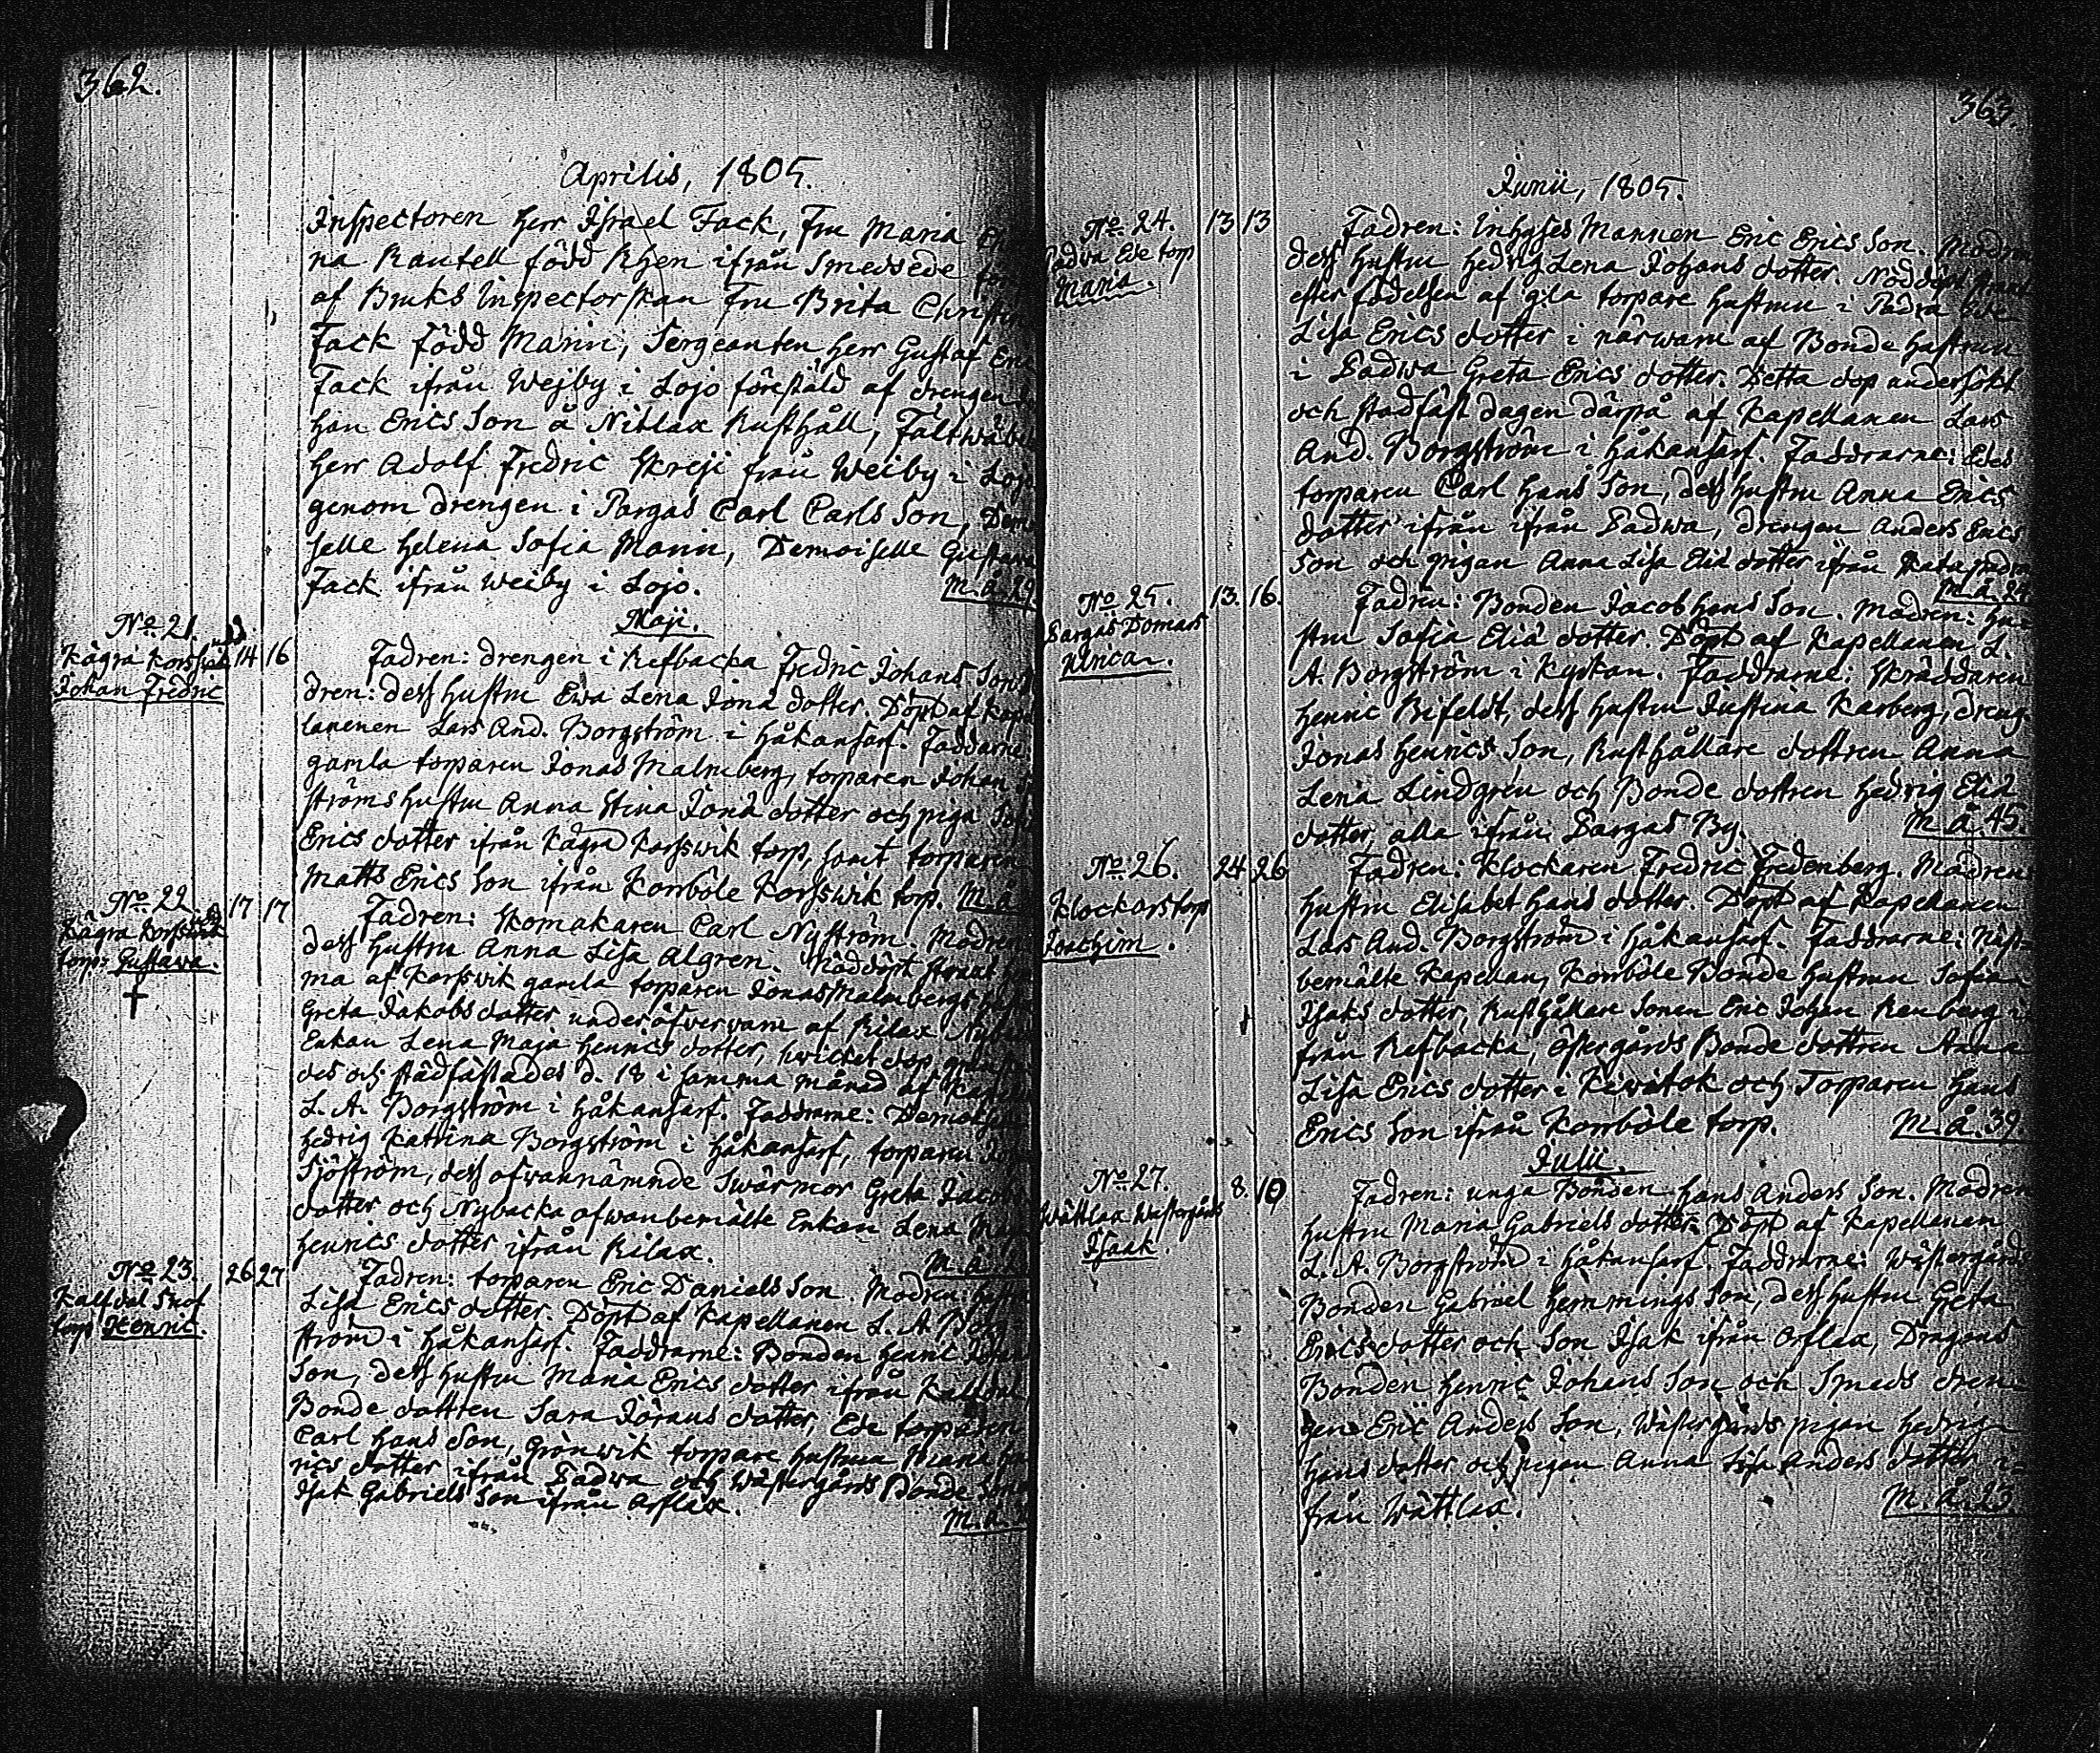 362.
Aprilis, 1805.
Inspectoren Herr Israel Fack, Fru Maria
na Rautell född Rhen ifrån Smedsede
af Bruks Inspectorskan Fru Brita Christin
Fack född Marin, Sergeanten Herr Gustaf Eric
Fack ifrån Wejby i Lojo föreståld af drengen
han Erics Son å Nitlax Rusthåll, Fältwäbel
Herr Adolf Fredric Skreji från Weiby i Lojo
genom drengen i Pargas Carl Carls Son, Demoi
selle Helena Sofia Marin, Demoiselle Gustava
Fack ifrån Weiby i Lojo. M. å. 29.
Maji.
No. 21.
Kägra Korsswik
Johan Fredric
14 16
Fadren: drengen i Refbacka Fredric Johans Son.
dren: dess hustru Ewa Lena Jona dotter. Döpt af Kapel
lanenen Lars And. Borgström i Håkansarf. Faddrarne:
gamla torparen Jonas Malmberg, torparen Johan
ströms hustru Anna Stina Jona dotter och piga
Erics dotter ifrån Kägra Korsswik torp, samt torparen
Matts Erics Son ifrån Korrböle Korsswik torp. M. å.
No. 22.
Kägra Korsswik
torp: Gustava.
17 17
Fadren: Skomakaren Carl Nyström. Modren
dess hustru Anna Lisa Algren. Nöddöpt straxt
ma af Korsswik gamla torparen Jonas Malmbergs
Greta Jakobs dotter under öfverwaro af Rilax
Enkan Lena Maja Henrics dotter, hwilket dop
des och stadfästades d. 18 i samma månad af
L. A. Borgström i Håkansarf. Faddrarne: Demoiselle
Hedvig Katrina Borgström i Håkansarf, torparen
Sjöström, dess ofwannämnde Swärmor Greta Jacobs
dotter och Nybacka ofwanbemälte Enkan Lena Maja
Henrics dotter ifrån Rilax. M. å.
No. 23.
torp Henric.
26 27
Fadren: torparen Eric Daniels Son. Modren:
Lisa Erics dotter. Döpt af Kapellanen L. A. Borg
ström i Håkansarf. Faddrarne: Bonden Henric
Son, dess hustru Maria Erics dotter ifrån
Bonde dottren Sara Görans dotter, Ede torparen
Carl Hans Son, Grönwik torpare hustrun Maria
rics dotter ifrån Padwa och Wästergårds Bonde Son
Isak Gabriels Son ifrån Orflax.
M. å.
363.
Junii, 1805.
No. 24.
Padva Ede torp
Maria.
13 13
Fadren: Inhyses Mannen Eric Erics Son. Modren
dess hustru Hedvig Lena Johans dotter. Nöddöpt straxt
efter födelsen af gla torpare hustrun i Padva Ede
Lisa Erics dotter i närwaro af Bonde hustrun
i Padwa Greta Erics dotter. Detta dop undersökt
och stadfäst dagen därpå af Kapellanen Lars
And. Borgström i Håkansarf. Faddrarne: Edes
torparen Carl Hans Son, dess hustru Anna Erics
dotter ifrån ifrån Padwa, drengen Anders Erics
Son och pigan Anna Lisa Eliä dotter ifrån
M. å. 24.
No. 25.
Pargas Domars
Ulrica.
13. 16.
Fadren: Bonden Jacob Hans Son. Modren: Hu-
stru Sofia Eliä dotter. Döpt af Kapellanen L.
A. Borgström i Kyrkan. Faddrarne: Skräddaren
Henric Refeldt, dess hustru Justina Karberg, dreng.
Jonas Henrics Son, Rusthållare dottren Anna
Lena Lindgrén och Bonde dottren Hedvig Eliä
dotter, alla ifrån Pargas By. M. å. 45.
No. 26.
Klockars torp
Joachim.
24 26
Fadren: Klockaren Fredric Fredenberg. Modren
Hustru Elisabet Hans dotter. Döpt af Kapellanen
Lars And. Borgström i Håkansarf. Faddrarne: Näst-
bemälte Kapellan, Korrböle Bonde hustrun Sofia
Isaks dotter, Rusthållare Sonen Eric Johan Renberg i-
från Refbacka, Östergårds Bonde dottren Anna
Lisa Erics dotter i Kewitok och Torparen Hans
Erics Son ifrån Korrböle torp. M. å. 39.
Julii.
No. 27.
Wättlax Wästergårds
Isaak.
8. 10
Fadren: unga Bonden Hans Anders Son. Modren
Hustru Maria Gabriels dotter. Döpt af Kapellanen
L. A. Borgström i Håkansarf. Faddrarne: Wästergårds
Bonden Gabriel Hemmings Son, dess hustru Greta
Erics dotter och Son Isak ifrån Orflax, Dragons
Bonden Henric Johans Son och Smeds dren-
gen Eric Anders Son, Wästergårds pigan Hedvig
Hans dotter och pigan Anna Lisa Anders dotter i-
från Wättlax. M. å. 23.